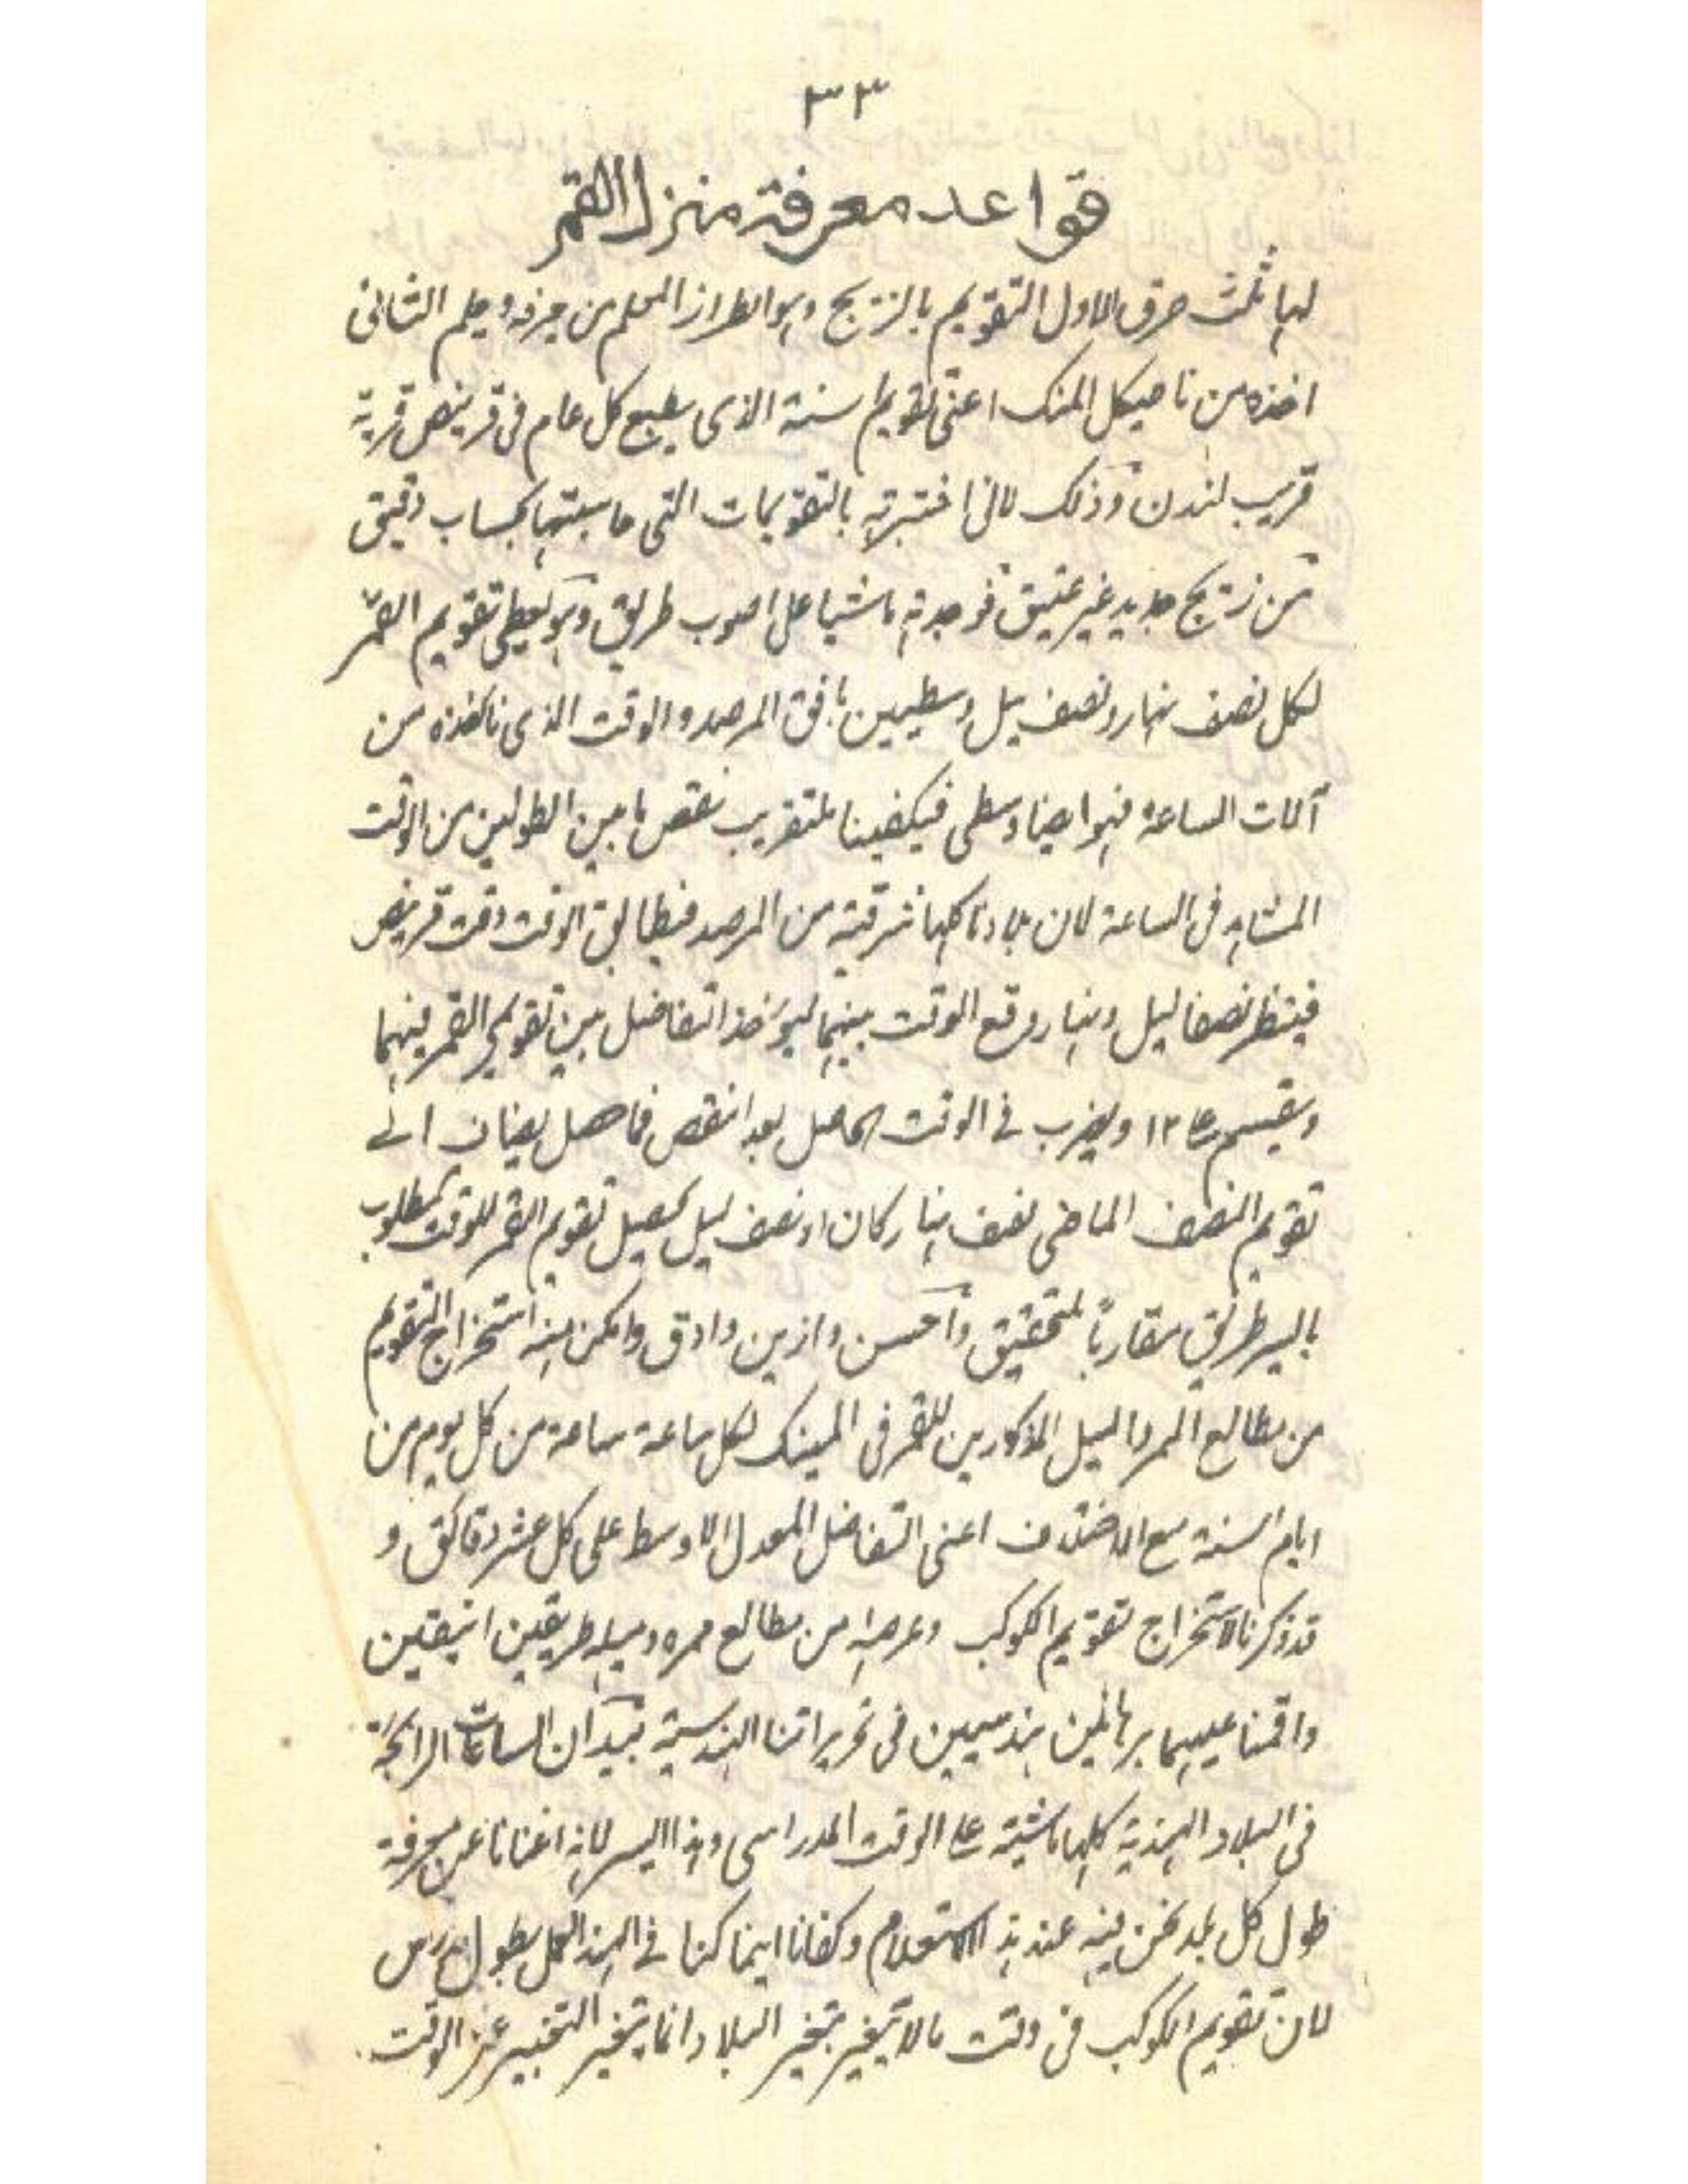 ٣٣
قواعد معرفة منزل القمر
لہا ثلٰث طرق الاول التقويم بالزيج وہو الطراز المعلم من عرفه وعلم الثانى
اخذه من ناٹيكل المنك اعنى تقويم سنة الذى يطبع كل عام فى قرينص قرية
قريب لندن وذلك لانى اختبرته بالتقويمات التى حاسبتہا بحساب دقيق
من زيج جديد غير عتيق فوجدته ماشيا على اصوب طريق وہو يعطى تقويم القمر
لكل نصف نہار ونصف ليل وسطيين بافق المرصد والوقت الذى ناخذه من
آلات الساعة فہو ايضا وسطى فيكفينا للتقريب نقص ما بين الطولين من الوقت
المشاہد فى الساعة لان بلادنا كلہا شرقية من المرصد فيطابق الوقت وقت قرينص
فينظر نصفا ليل ونہار وقع الوقت بينہما ليؤخذ التفاضل بين تقويمى القمر فيہما
ويقسم على ١٢ ويضرب فى الوقت الحاصل بعد النقص فما حصل يضاف الى
تقويم النصف الماضى نصف نہار كان او نصف ليل يحصل تقويم القمر للوقت المطلوب
بايسر طريق مقاربًا للتحقيق وآحسن وازين وادق وامكن منہ استخراج التقويم
من مطالع الممر والميل المذكورين للقمر فى المينك لكل ساعة ساعة من كل يوم من
ايام السنة مع الاختلاف اعنى التفاضل المعدل الاوسط على كل عشر دقائق و
قد ذكرنا لاستخراج تقويم الكوكب وعرضہ من مطالع ممره وميلہ طريقين انيقين
واقمنا عليہما برہانين ہندسيين فى تحريراتنا الہندسية بيد ان الساعات الرائجة
فى البلاد الہندية كلہا ماشية على الوقت المدراسى وہذا ايسر لانہ اغنانا عن معرفة
طول كل بلد نحن فيہ عند ہذا الاستعلام وكفانا اينما كنا فى الہند العمل بطول مدراس
لان تقويم الكوكب فى وقت ما لا يتغير بتغير البلاد وانما يتغير التعبير عن الوقت